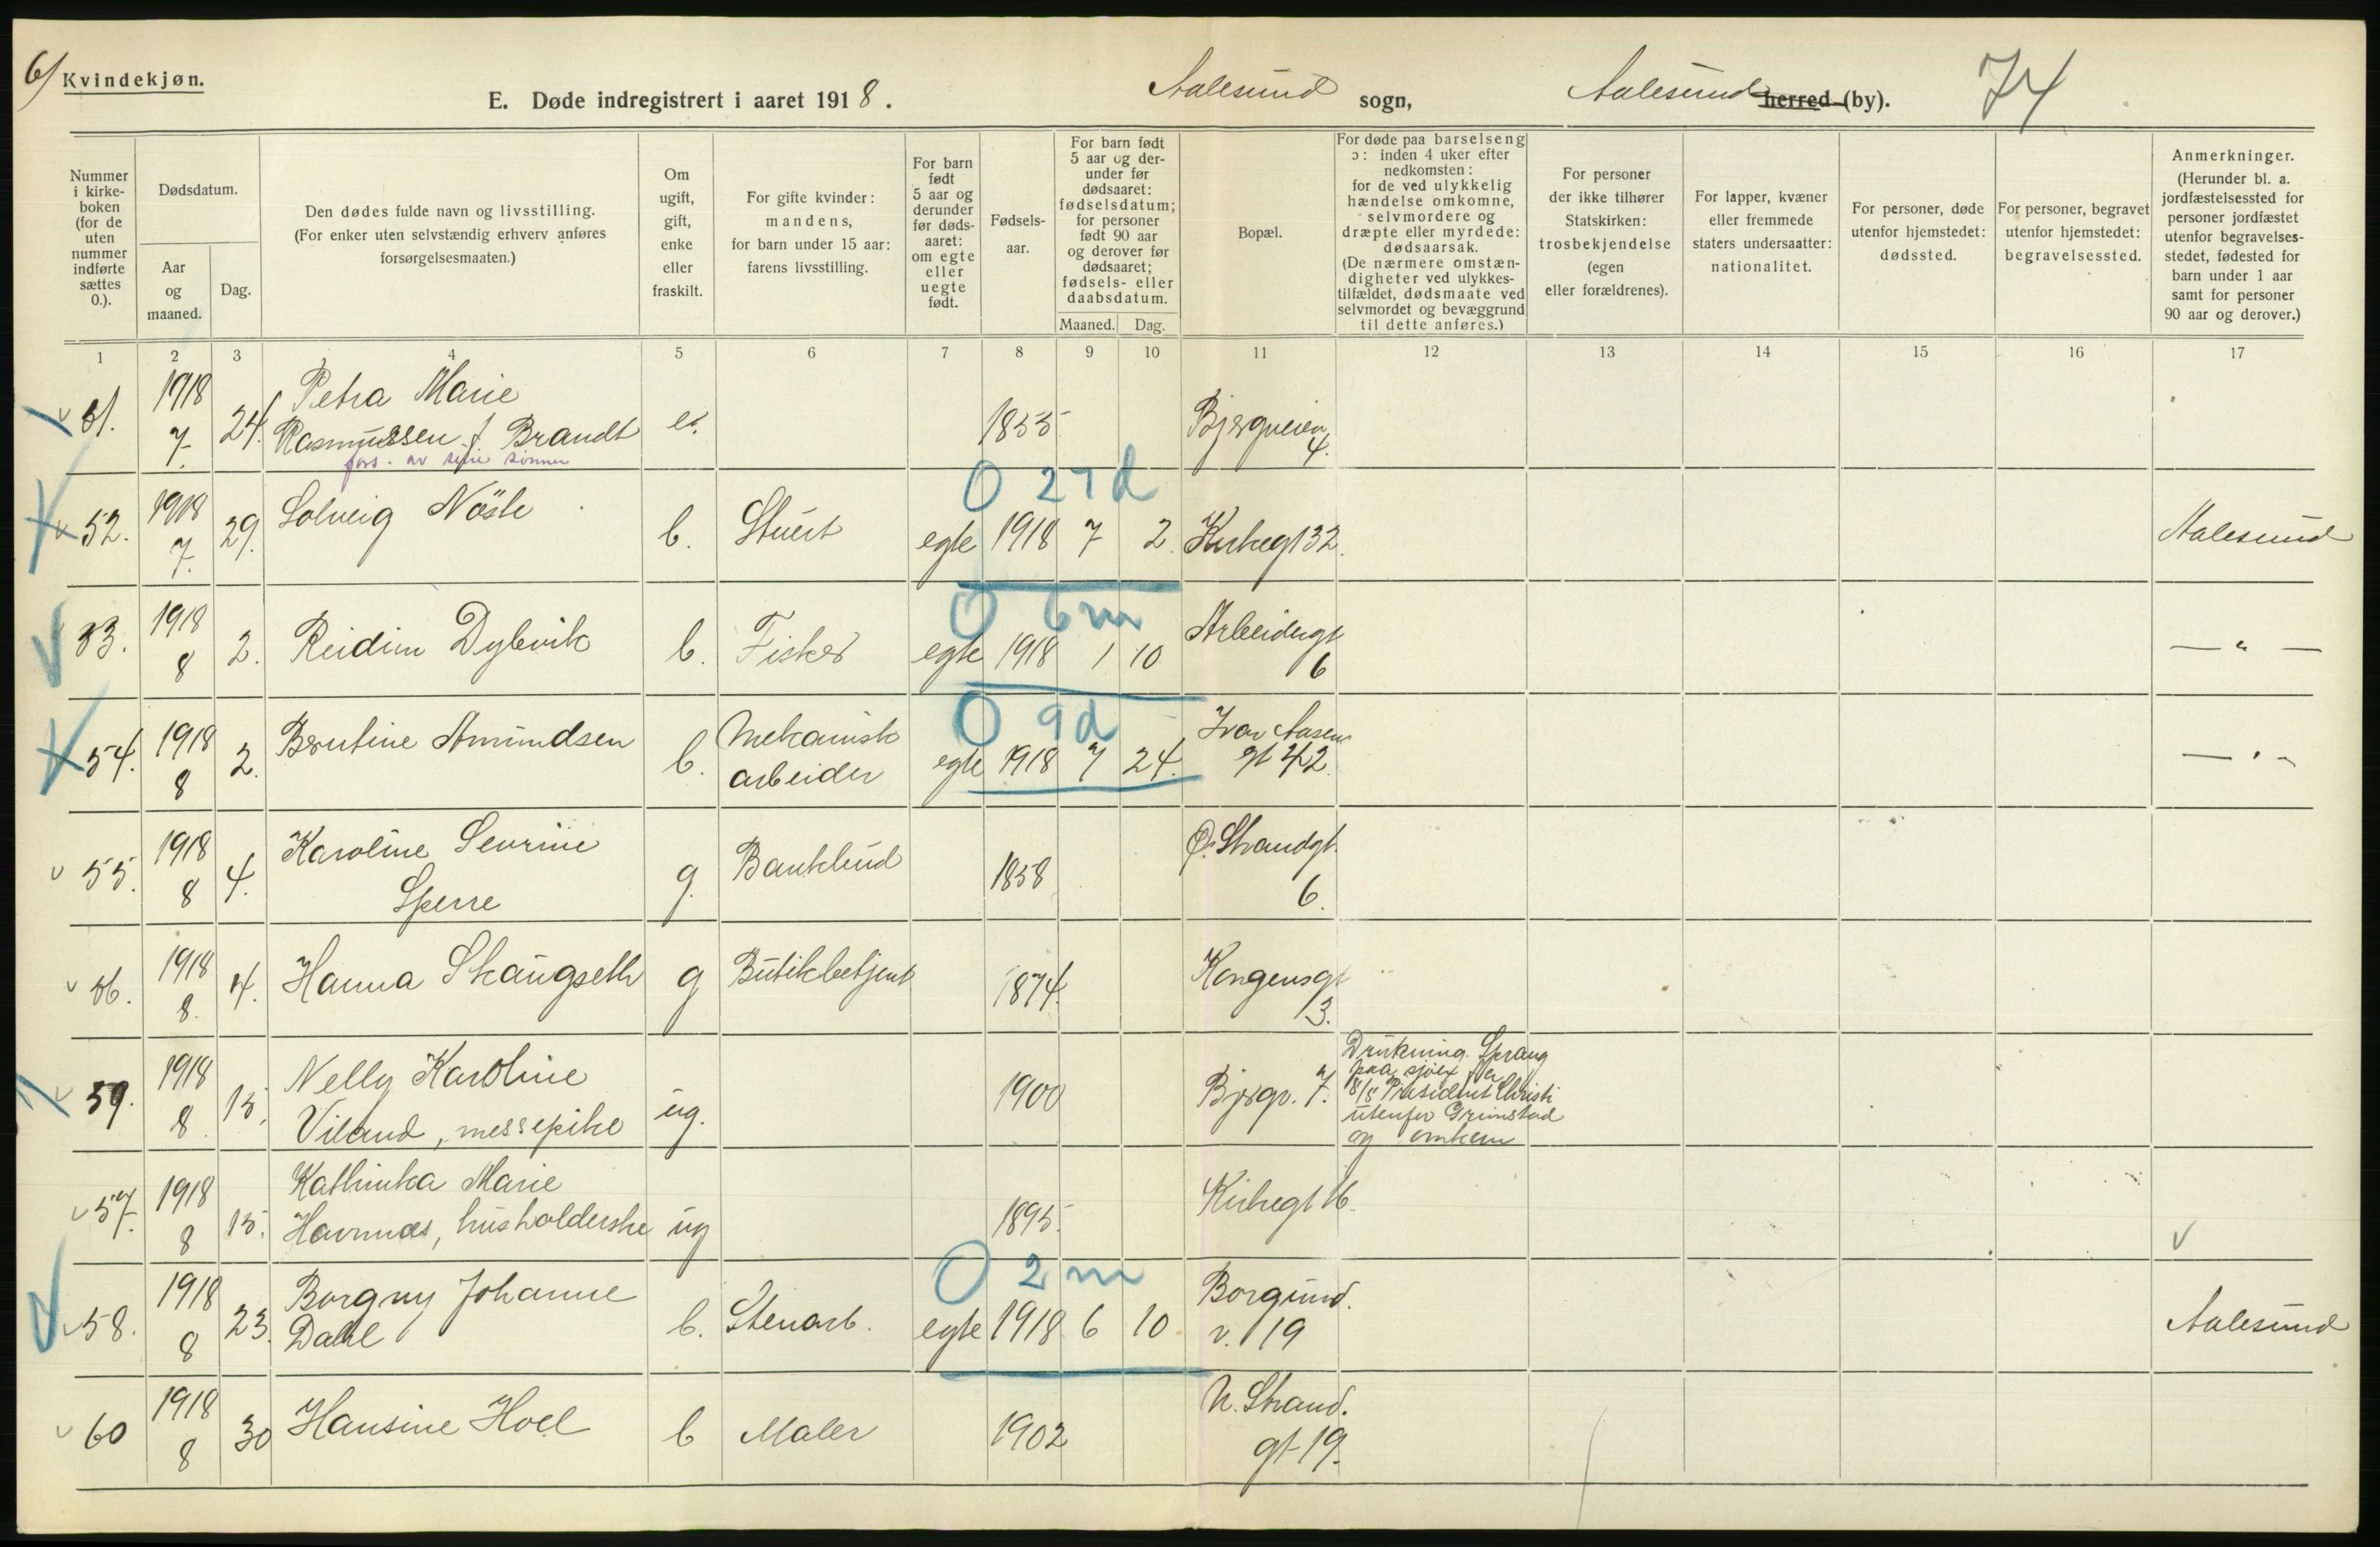 6/ Kvindekjøn.
E. Døde indregistrert i aaret 1918. Aalesund sogn, Aalesund herred (by). 74
Nummer i kirkeboken (for de uten nummer indførte sættes 0.).
Dødsdatum.
Aar og maaned.
Dag.
Den dødes fulde navn og livsstilling.
(For enker uten selvstændig erhverv anføres forsørgelsesmaaten.)
Om ugift, gift, enke eller fraskilt.
For gifte kvinder: mandens, for barn under 15 aar: farens livsstilling.
For barn født 5 aar og derunder før dødsaaret: om egte eller uegte født.
Fødselsaar.
For barn født 5 aar og derunder før dødsaaret: fødselsdatum; for personer født 90 aar og derover før dødsaaret; fødsels- eller daabsdatum.
Maaned. Dag.
Bopæl.
For døde paa barselseng ɔ: inden 4 uker efter nedkomsten: for de ved ulykkelig hændelse omkomne, selvmordere og dræpte eller myrdede: dødsaarsak. (De nærmere omstændigheter ved ulykkestilfældet, dødsmaate ved selvmordet og bevæggrund til dette anføres.)
For personer der ikke tilhører Statskirken: trosbekjendelse (egen eller forældrenes).
For lapper, kvæner eller fremmede staters undersaatter: nationalitet.
For personer, døde utenfor hjemstedet: dødssted.
For personer, begravet utenfor hjemstedet: begravelsessted.
Anmerkninger. (Herunder bl. a. jordfæstelsessted for personer jordfæstet utenfor begravelsesstedet, fødested for barn under 1 aar samt for personer 90 aar og derover.)
1 2 3 4 5 6 7 8 9 10 11 12 13 14 15 16 17
51. 1918 7. 24. Petra Marie
Rasmussen f. Brandt e. 1855 Bjørgveien 4.
fors. av sine sønner
O 27 d
52. 1918 7. 29. Solveig Nöste b. Stuert egte 1918 7 2. Kirkegt 32. Aalesund
O 6 m
53. 1918 8 2. Reidun Dybvik b. Fisker egte 1918 1 10 Arbeidergt 6 — " —
O 9 d
54. 1918 8 2. Berntine Amundsen b. Mekanisk
arbeider egte 1918 7 24. Ivar Aasens
gt 42. — " —
55. 1918 8 4. Karoline Sevrine
Sperre g. Bankbud 1858 Ø. Strandgt.
6.
56. 1918 8. 4. Hanna Skaugseth g Butikbetjent 1874. Kongensgt
3.
59. 1918 8 15. Nelly Karoline
Viland, messepike ug. 1900 Bjørgv. 7. Drukning. Sprang
paa sjøex
8/8 Præsident Christi
utenfor Grimstad
og omkom
57. 1918 8 15. Kathinka Marie
Havnnæs, husholderske ug 1895. Kirkegt 16.
O 2 m
58. 1918 8 23. Borgny Johanne
Dahl b. Stenarb. egte 1918 6 10 Borgund.
v. 19 Aalesund
60 1918 8 30 Hansine Hoel b Maler 1902 N. Strand.
gt 19.